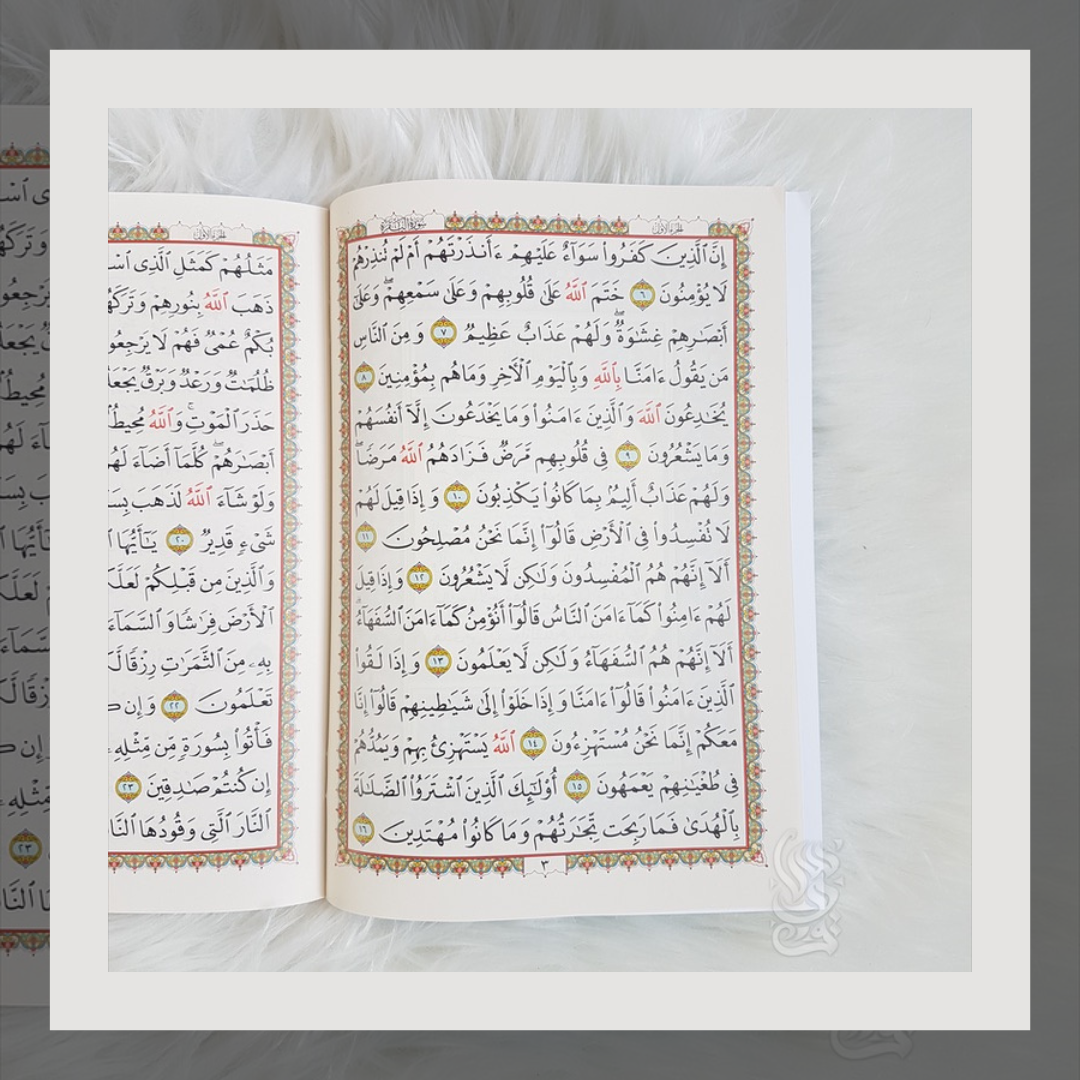 سورة البقرة
الجزء الأول
إِنَّ ٱلَّذِينَ كَفَرُوا۟ سَوَآءٌ عَلَيْهِمْ ءَأَنذَرْتَهُمْ أَمْ لَمْ تُنذِرْهُمْ
لَا يُؤْمِنُونَ ٦ خَتَمَ ٱللَّهُ عَلَىٰ قُلُوبِهِمْ وَعَلَىٰ سَمْعِهِمْ ۖ وَعَلَىٰٓ
أَبْصَـٰرِهِمْ غِشَـٰوَةٌ ۖ وَلَهُمْ عَذَابٌ عَظِيمٌ ٧ وَمِنَ ٱلنَّاسِ
مَن يَقُولُ ءَامَنَّا بِٱللَّهِ وَبِٱلْيَوْمِ ٱلْـَٔاخِرِ وَمَا هُم بِمُؤْمِنِينَ ٨
يُخَـٰدِعُونَ ٱللَّهَ وَٱلَّذِينَ ءَامَنُوا۟ وَمَا يَخْدَعُونَ إِلَّآ أَنفُسَهُمْ
وَمَا يَشْعُرُونَ ٩ فِى قُلُوبِهِم مَّرَضٌ فَزَادَهُمُ ٱللَّهُ مَرَضًا ۖ
وَلَهُمْ عَذَابٌ أَلِيمٌۢ بِمَا كَانُوا۟ يَكْذِبُونَ ١٠ وَإِذَا قِيلَ لَهُمْ
لَا تُفْسِدُوا۟ فِى ٱلْأَرْضِ قَالُوٓا۟ إِنَّمَا نَحْنُ مُصْلِحُونَ ١١
أَلَآ إِنَّهُمْ هُمُ ٱلْمُفْسِدُونَ وَلَـٰكِن لَّا يَشْعُرُونَ ١٢ وَإِذَا قِيلَ
لَهُمْ ءَامِنُوا۟ كَمَآ ءَامَنَ ٱلنَّاسُ قَالُوٓا۟ أَنُؤْمِنُ كَمَآ ءَامَنَ ٱلسُّفَهَآءُ ۗ
أَلَآ إِنَّهُمْ هُمُ ٱلسُّفَهَآءُ وَلَـٰكِن لَّا يَعْلَمُونَ ١٣ وَإِذَا لَقُوا۟
ٱلَّذِينَ ءَامَنُوا۟ قَالُوٓا۟ ءَامَنَّا وَإِذَا خَلَوْا۟ إِلَىٰ شَيَـٰطِينِهِمْ قَالُوٓا۟ إِنَّا
مَعَكُمْ إِنَّمَا نَحْنُ مُسْتَهْزِءُونَ ١٤ ٱللَّهُ يَسْتَهْزِئُ بِهِمْ وَيَمُدُّهُمْ
فِى طُغْيَـٰنِهِمْ يَعْمَهُونَ ١٥ أُو۟لَـٰٓئِكَ ٱلَّذِينَ ٱشْتَرَوُا۟ ٱلضَّلَـٰلَةَ
بِٱلْهُدَىٰ فَمَا رَبِحَت تِّجَـٰرَتُهُمْ وَمَا كَانُوا۟ مُهْتَدِينَ ١٦
٣
الجزء الأول
مَثَلُهُمْ كَمَثَلِ ٱلَّذِى
ذَهَبَ ٱللَّهُ بِنُورِهِمْ
بُكْمٌ عُمْىٌ فَهُمْ لَا
ظُلُمَـٰتٌ وَرَعْدٌ وَبَرْقٌ
حَذَرَ ٱلْمَوْتِ ۚ وَٱللَّهُ
أَبْصَـٰرَهُمْ ۖ كُلَّمَآ أَضَآءَ
وَلَوْ شَآءَ ٱللَّهُ لَذَهَبَ
شَىْءٍ قَدِيرٌ ٢٠ يَـٰٓأَيُّهَا
وَٱلَّذِينَ مِن قَبْلِكُمْ
ٱلْأَرْضَ فِرَٰشًا وَٱلسَّمَآءَ
بِهِۦ مِنَ ٱلثَّمَرَٰتِ رِزْقًا
تَعْلَمُونَ ٢٢ وَإِن
فَأْتُوا۟ بِسُورَةٍ مِّن مِّثْلِهِۦ
إِن كُنتُمْ صَـٰدِقِينَ ٢٣
ٱلنَّارَ ٱلَّتِى وَقُودُهَا